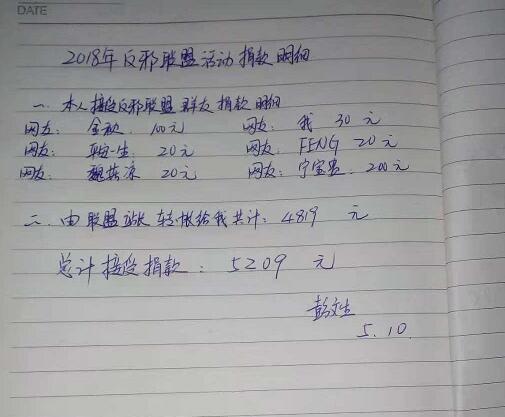 DATE
2018年反邪联盟活动捐款明细
一、本人接受反邪联盟群友捐款明细
网友: 100元 网友: 我 30元
网友: 一生 20元 网友: FENG 20元
网友: 20元 网友: 宁宝贵 200元
二、由联盟站长转帐给我共计: 4819 元
总计接受捐款: 5209 元
彭文生
5.10.